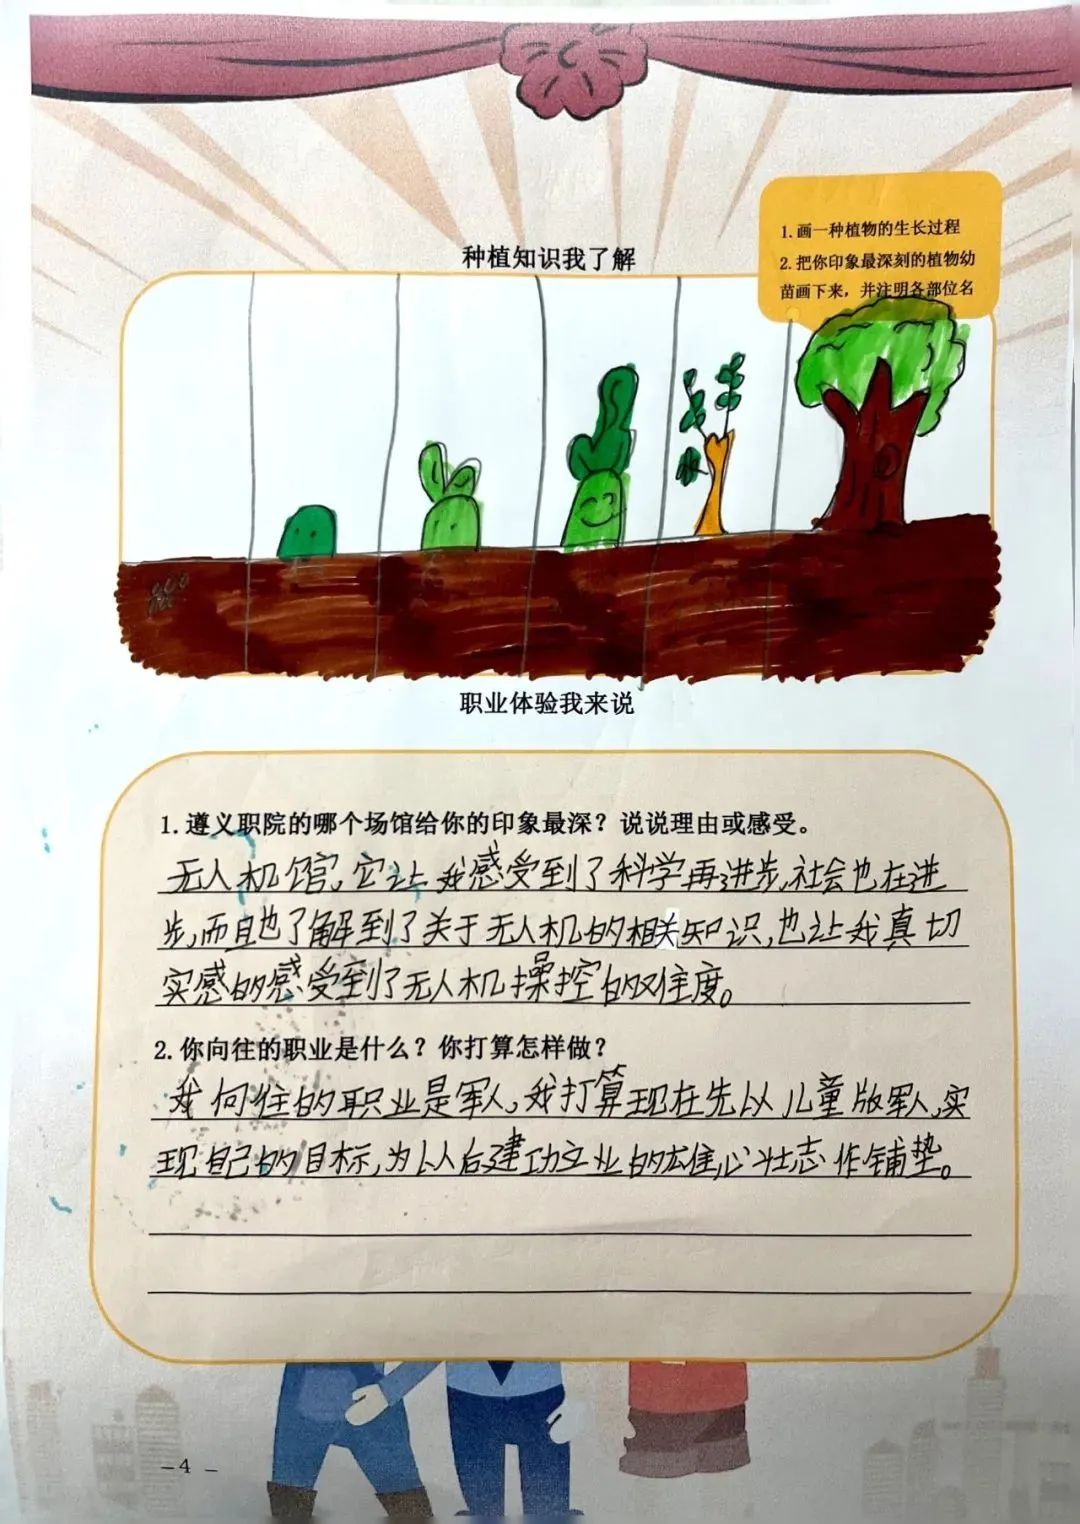 种植知识我了解
1.画一种植物的生长过程
2.把你印象最深刻的植物幼
苗画下来，并注明各部位名
职业体验我来说
1.遵义职院的哪个场馆给你的印象最深？说说理由或感受。
无人机馆，它让我感受到了科学再进步，社会也在进
步，而且也了解到了关于无人机的相关知识，也让我真切
实感的感受到了无人机操控的难度。
2.你向往的职业是什么？你打算怎样做？
我向往的职业是军人，我打算现在先以儿童版军人，实
现自己的目标，为以后建功立业的雄心壮志作铺垫。
－4－